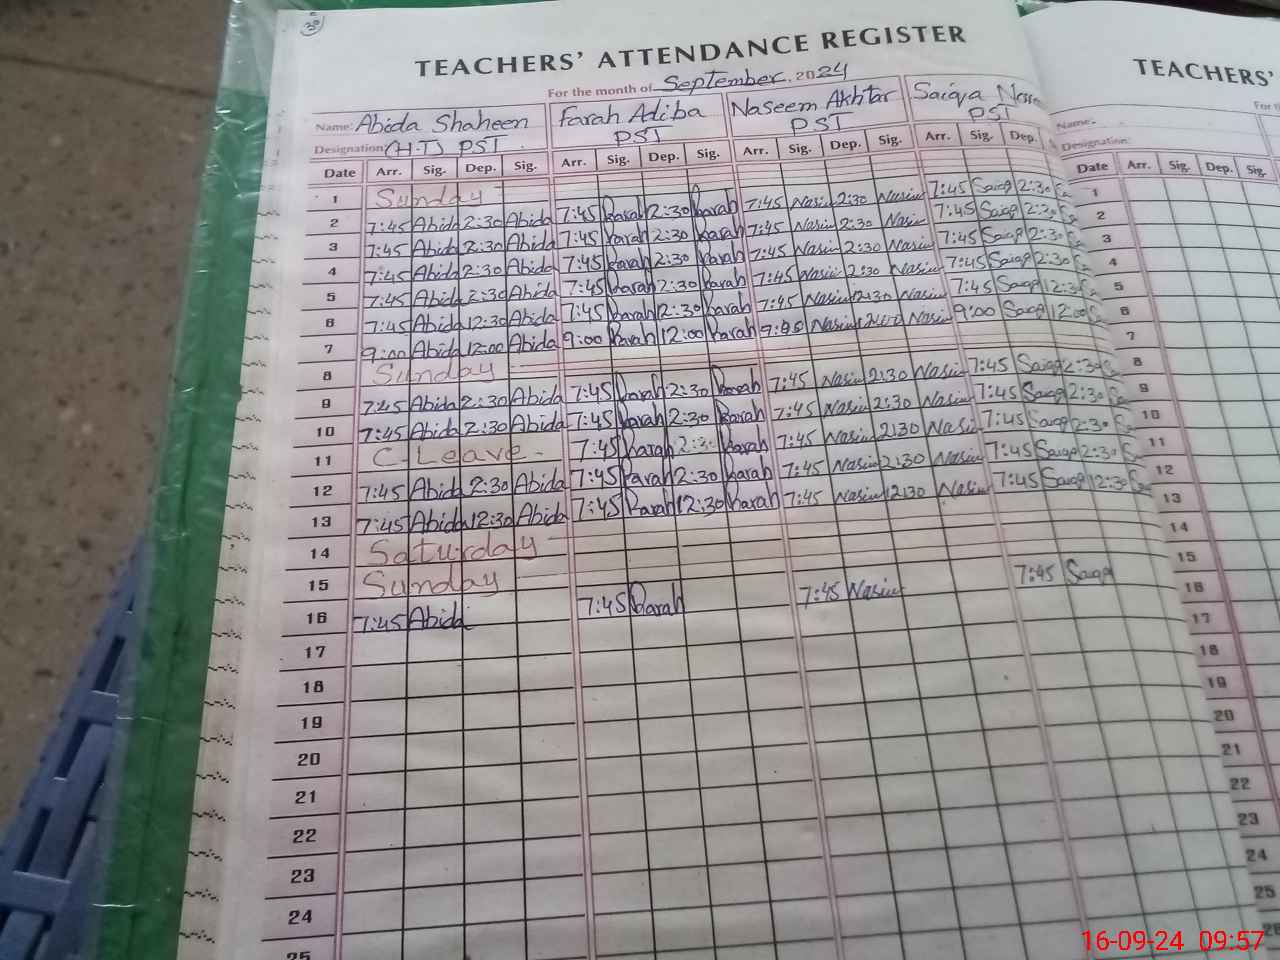 30
TEACHERS' ATTENDANCE REGISTER
For the month of September. 2024
Name: Abida Shaheen Farah Adiba Naseem Akhtar Saiqa
Designation: (H.T) PST PST PST PST
Date Arr. Sig. Dep. Sig. Arr. Sig. Dep. Sig. Arr. Sig. Dep. Sig. Arr. Sig. Dep.
1 Sunday
2 7:45 Abida 2:30 Abida 7:45 Farah 2:30 Farah 7:45 Nasim 2:30 Nasim 7:45 Saiqa 2:30
3 7:45 Abida 2:30 Abida 7:45 Farah 2:30 Farah 7:45 Nasim 2:30 Nasim 7:45 Saiqa 2:30
4 7:45 Abida 2:30 Abida 7:45 Farah 2:30 Farah 7:45 Nasim 2:30 Nasim 7:45 Saiqa 2:30
5 7:45 Abida 2:30 Abida 7:45 Farah 2:30 Farah 7:45 Nasim 2:30 Nasim 7:45 Saiqa 2:30
6 7:45 Abida 12:30 Abida 7:45 Farah 12:30 Farah 7:45 Nasim 12:30 Nasim 7:45 Saiqa 12:30
7 9:00 Abida 12:00 Abida 9:00 Farah 12:00 Farah Nasim 12:00 Nasim 9:00 Saiqa 12:00
8 Sunday
9 7:45 Abida 2:30 Abida 7:45 Farah 2:30 Farah 7:45 Nasim 2:30 Nasim 7:45 Saiqa 2:30
10 7:45 Abida 2:30 Abida 7:45 Farah 2:30 Farah 7:45 Nasim 2:30 Nasim 7:45 Saiqa 2:30
11 C-Leave. 7:45 Farah 2:30 Farah 7:45 Nasim 2:30 Nasim 7:45 Saiqa 2:30
12 7:45 Abida 2:30 Abida 7:45 Farah 2:30 Farah 7:45 Nasim 2:30 Nasim 7:45 Saiqa 2:30
13 7:45 Abida 12:30 Abida 7:45 Farah 12:30 Farah 7:45 Nasim 12:30 Nasim 7:45 Saiqa 12:30
14 Saturday
15 Sunday
16 7:45 Abida 7:45 Farah 7:45 Nasim 7:45 Saiqa
17
18
19
20
21
22
23
24
25
TEACHERS'
Name:
Designation:
Date Arr. Sig. Dep. Sig.
1
2
3
4
5
6
7
8
9
10
11
12
13
14
15
16
17
18
19
20
21
22
23
24
25
26
16-09-24 09:57